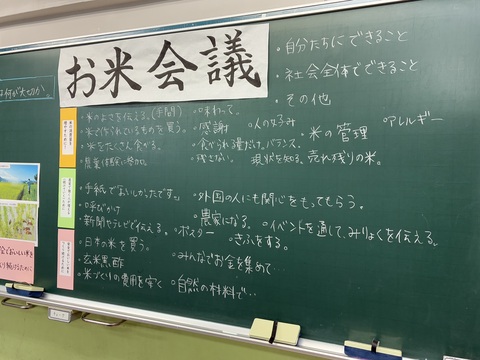 お米会議
・自分たちにできること
・社会全体でできること
・その他
は何が大切か。
・米のよさを伝える。(手紙)
・米で作られているものを買う。
・米をたくさん食べる。
・農業体験に参加。
・味わって。
・感謝
・人の好み
・食べられる量だけ。バランス。
・残さない。
現状を知る。売れ残りの米。
・米の管理
・アレルギー
・手紙でおいしかったです。
・呼びかけ
・新聞やテレビで伝える。
・ポスター
・日本の米を買う。
・玄米黒酢
・米づくりの費用を安く
・外国の人にも関心をもってもらう。
・農家になる。
・イベントを通して、みりょくを伝える。
・きふをする。
・みんなでお金を集めて…
・自然の材料で…